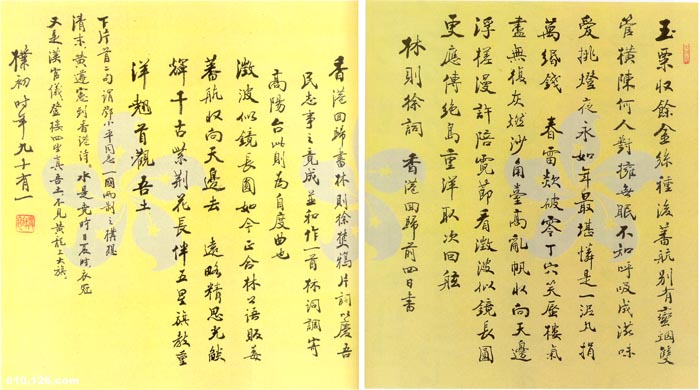 玉粟收餘金絲種後蕃航別有蠻烟雙
管橫陳何人對擁無眠不知呼吸成滋味
愛挑燈夜永如年最堪憐是一泥丸捐
萬緡錢 春雷欻破零丁穴笑蜃樓氣
盡無復灰燃沙角臺高亂帆收向天邊
浮槎漫許陪霓節看澂波似鏡長圓
更應傳絕島重洋取次回舷
林則徐詞 香港回歸前四日書
香港回歸書林則徐禁鴉片詞以慶吾
民志事之竟成並和作一首林詞調寄
高陽台此則為自度曲也
澂波似鏡長圓如今正合林公語販毒
蕃航收向天邊去 遠略精思光燄
輝千古紫荆花長伴五星旗教重
洋翹首觀吾土
下片首二句謂鄧小平同志一國兩制之構想
清末黄遵憲到香港詩水是堯時日夏時衣冠
又是漢官儀登樓四望真吾土不見黄龍上大旗
樸初時年九十有一